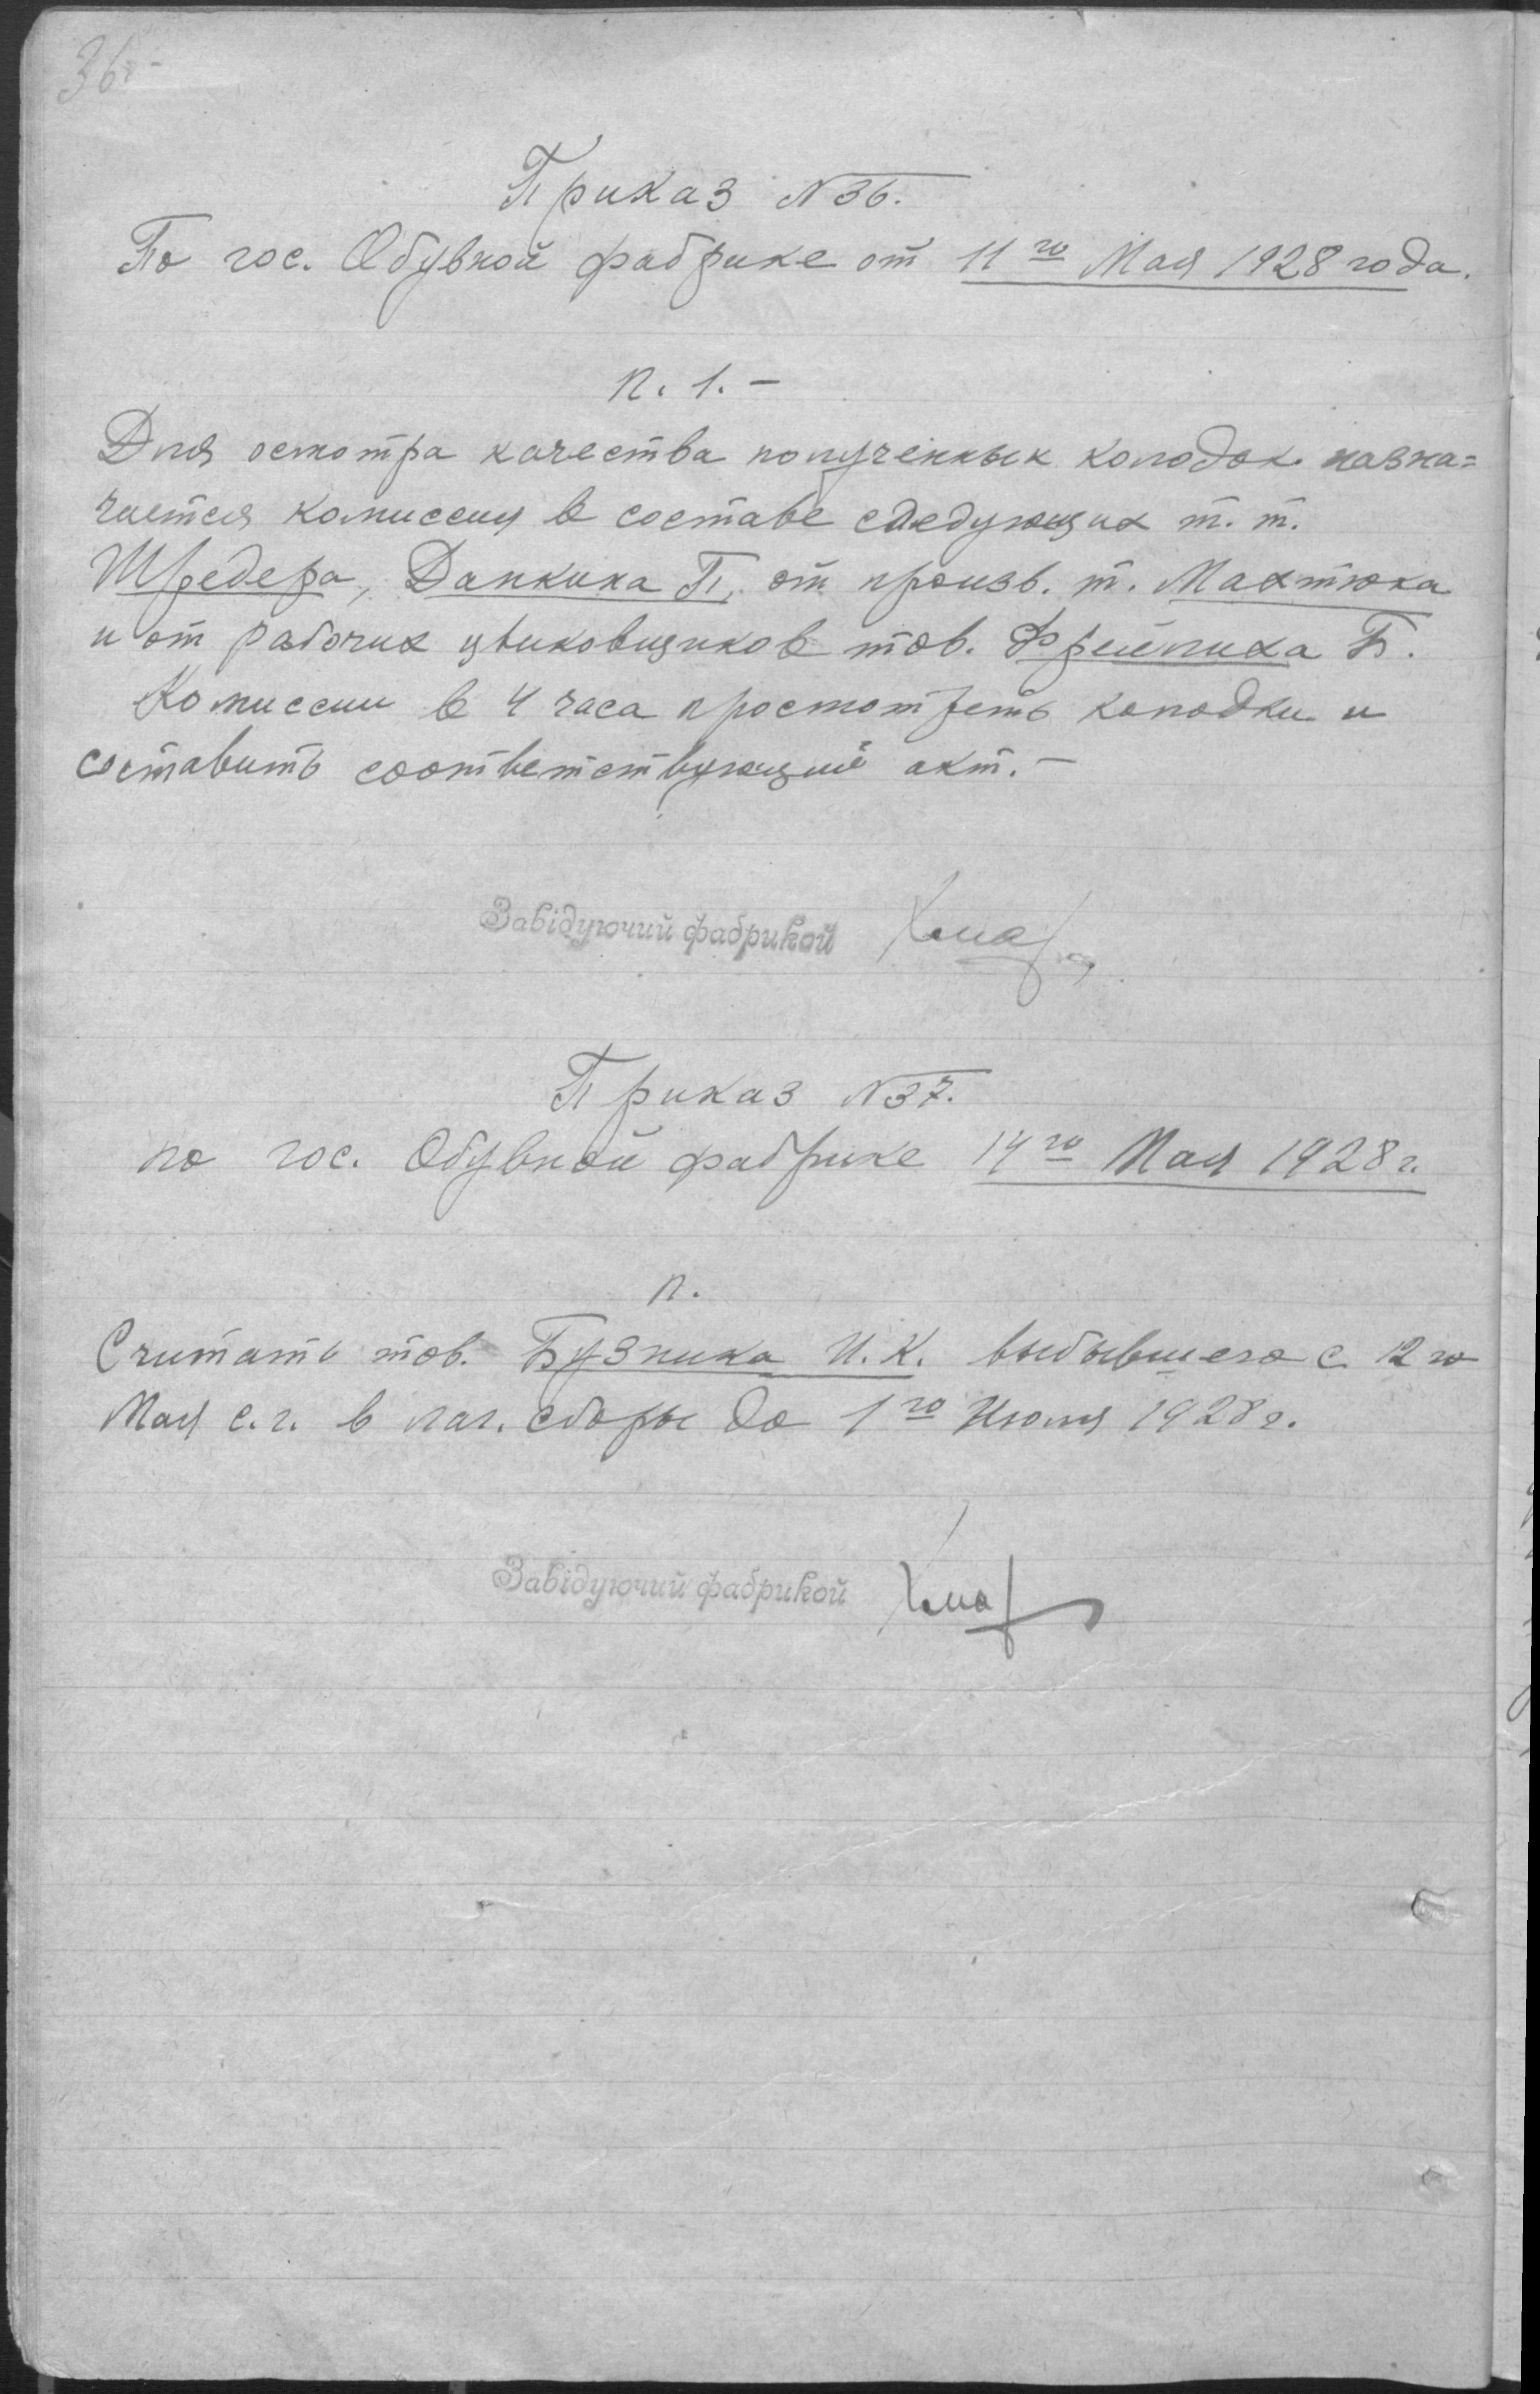 36
Приказ N36.
По гос. Обувной фабрике от 11го Мая 1928 года.
п. 1. –
Для осмотра качества полученных колодок назна=
чается комиссия в составе следующих т. т.
Шредера, Данкина П, от произв. т. Махтюка
и от рабочих цвиковщиков тов. Фрейлиха Б.
Комиссии в 4 часа просмотреть колодки и
составить соответствующий акт. –
Завідуючий фабрикой
Приказ N37.
по гос. Обувной фабрике 14го Мая 1928 г.
п.
Считать тов. Бузника И. К. выбывшего с 12го
Мая с. г. в лаг. сборы до 1го Июля 1928 г.
Завідуючий фабрикой